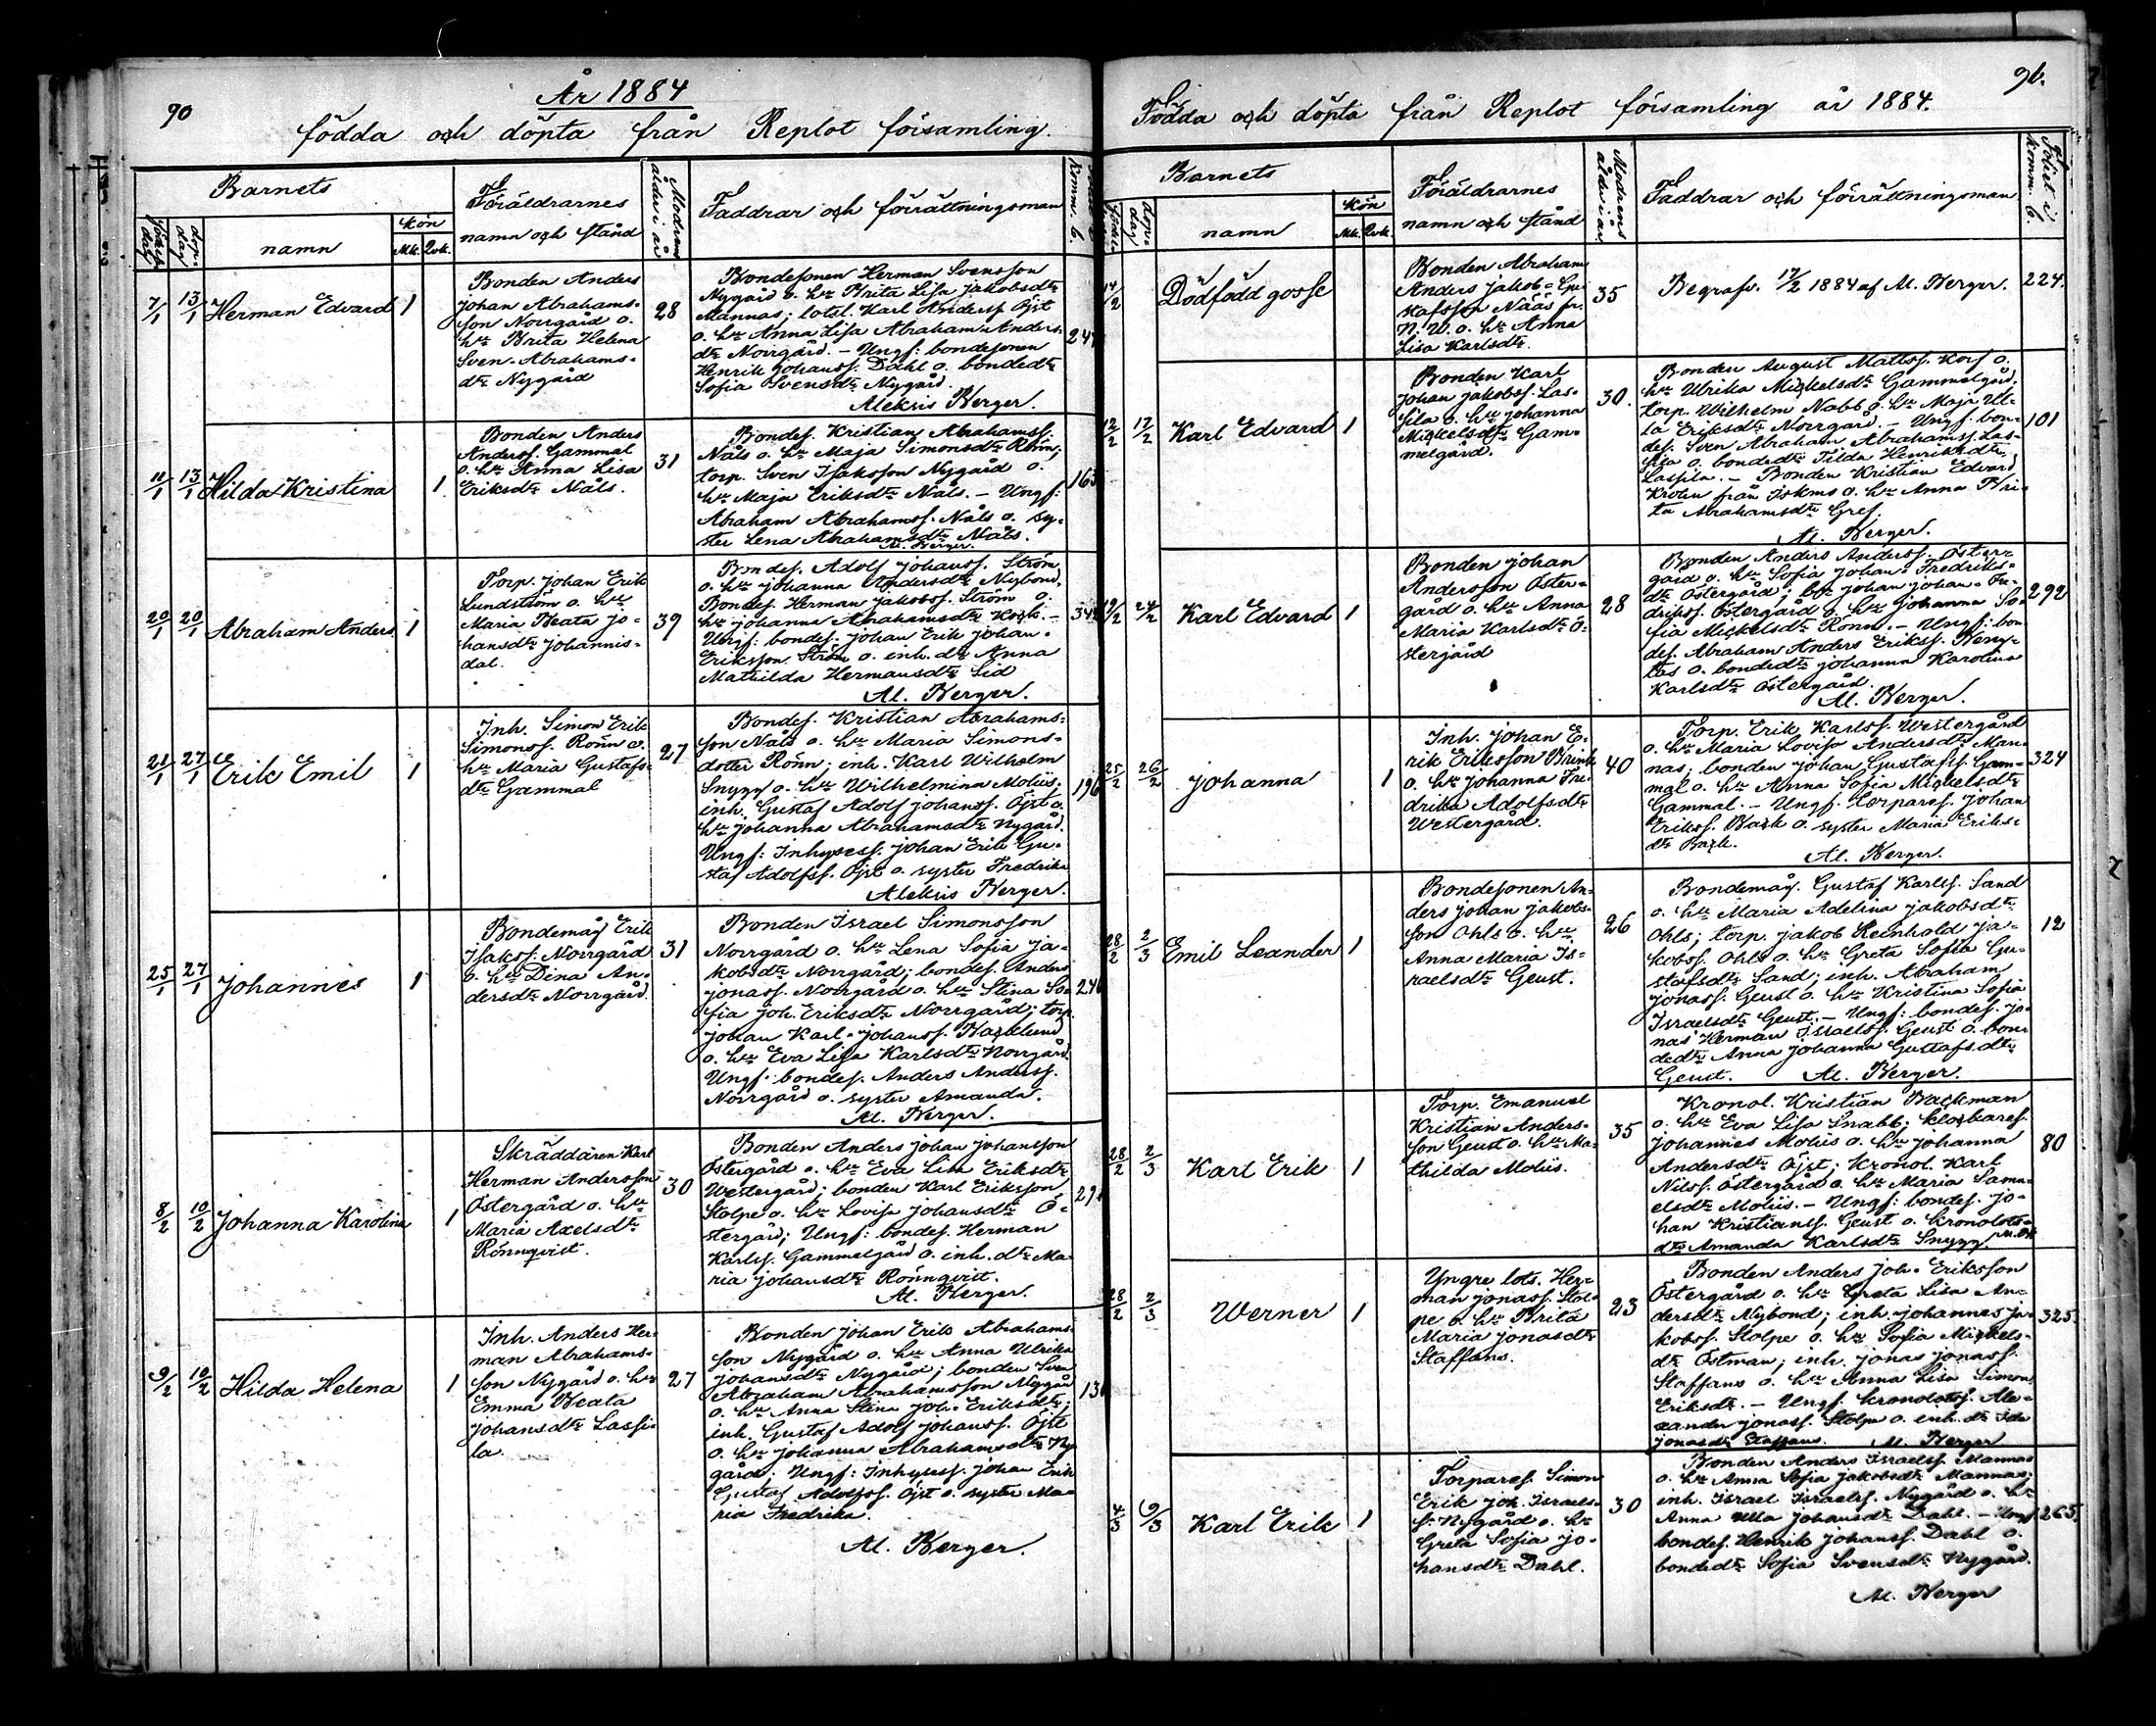 90
År 1884
födda och döpta från Replot församling.
Barnets
Föräldrarnes
namn och stånd
Modrens
ålder i år
Faddrar och förrättningsman
Komm. b.
födelse
dag
dop-
dag
namn
Kön
Mk.
Qvk.
7/1
13/1
Herman Edvard
1
Bonden Anders
Johan Abrahams-
son Norrgård o.
hu Brita Helena
Sven-Abrahams-
dtr Nygård
28
Bondesonen Herman Svensson
Nygård o. hu Brita Lisa Jakobsdtr
Mannas; lotsl. Karl Anderss. Öjst
o. hu Anna Lisa Abraham-Anders-
dtr Norrgård. - Ungf: bondesonen
Henrik Johanss. Dahl o. bondedtr
Sofia Svensdtr Nygård.
Aleksis Berger.
11/1
13/1
Hilda Kristina
1
Bonden Anders
Anderss. Gammal
o. hu Anna Lisa
Eriksdtr Nåls.
31
Bondes. Kristian Abrahamss.
Nåls o. hu Maja Simonsdtr Rönn;
torp. Sven Isaksson Nygård o.
hu Maja Eriksdtr Nåls. - Ungf:
Abraham Abrahamss. Nåls o. sy-
ster Lena Abrahamsdtr Nåls.
Al. Berger.
20/1
20/1
Abraham Anders
1
Torp. Johan Erik
Lundström o. hu
Maria Beata Jo-
hansdtr Johannis-
dal.
39
Bondes. Adolf Johanss. Ström
o. hu Johanna Andersdtr Nybond,
Bondes. Herman Jakobss. Ström o.
hu Johanna Abrahamsdtr -
Ungf: bondes. Johan Erik Johan-
Eriksson Ström o. inh. dtr Anna
Mathilda Hermansdtr Sid
Al. Berger.
21/1
27/1
Erik Emil
1
Inh. Simon Erik
Simonss. Rönn o.
hu Maria Gustafs-
dtr Gammal
27
Bondes. Kristian Abrahams-
son Nåls o. hu Maria Simons-
dotter Rönn; inh. Karl Wilhelm
Snygg o. hu Wilhelmina Moliis.
inh. Gustaf Adolf Johanss. Öjst o.
hu Johanna Abrahamsdtr Nygård.
Ungf: Inhysess. Johan Erik Gu-
staf Adolfss. Öjst o. syster Fredrika
Aleksis Berger.
196
25/1
27/1
Johannes
1
Bondemåg Erik
Isakss. Norrgård
o. hu Dina An-
dersdtr Norrgård.
31
Bonden Israel Simonsson
Norrgård o. hu Lena Sofia Ja-
kobsdtr Norrgård; bondes. Anders
Jonass. Norrgård o. hu Stina So-
fia Joh. Eriksdtr Norrgård; torp.
Johan Karl-Johanss. Backlund
o. hu Eva Lisa Karlsdtr Norrgård.
Ungf. bondes. Anders Anderss.
Norrgård o. syster Amanda.
Al. Berger.
8/2
10/2
Johanna Karolina
1
Skräddaren Karl
Herman Andersson
Östergård o. hu
Maria Axelsdtr
Rönnqvist.
30
Bonden Anders Johan Johansson
Östergård o. hu Eva Lisa Eriksdtr
Westergård; bonden Karl Eriksson
Stolpe o. hu Lovisa Johansdtr Ö-
stergård; Ungf: bondes. Herman
Karlss. Gammelgård o. inh. dtr Ma-
ria Johansdtr Rönnqvist.
Al. Berger.
9/2
10/2
Hilda Helena
1
Inh. Anders Her-
man Abrahams-
son Nygård o. hu
Emma Beata
Johansdtr Lassi-
la.
27
Bonden Johan Erik Abrahams-
son Nygård o. hu Anna Ulrika
Johansdtr Nygård; bonden Sven
Abraham Abrahamsson Nygård
o. hu Anna Stina Joh. Eriksdtr;
inh. Gustaf Adolf Johanss. Öjst
o. hu Johanna Abrahamsdtr Ny-
gård; Ungf: Inhysess. Johan Erik
Gustaf Adolfss. Öjst o. syster Ma-
ria Fredrika.
Al. Berger.
91.
Födda och döpta från Replot församling år 1884.
Barnets
Föräldrarnes
namn och stånd
Modrens
ålder i år
Faddrar och förrättningsman
Folist i
komm. b.
dop-
dag
namn
Kön
Mk.
Qvk.
14/2
Dödfödd gosse
Bonden Abraham
Anders Jakob-Gu-
stafsson Nääs fr.
N. W. o. hu Anna
Lisa Karlsdtr.
35
Begrafv. 17/2 1884 af Al. Berger.
224.
12/2
17/2
Karl Edvard
1
Bonden Karl
Johan Jakobss. Las-
sila o. hu Johanna
Mickelsdtr Gam-
melgård.
30.
Bonden August Matts. Kors o.
hu Ulrika Mickelsdtr Gammelgård;
torp. Wilhelm Nabb o. hu Maja Ul-
la Eriksdtr Norrgård. - Ungf. bon-
des. Sven Abraham Abrahamss. Las-
sila o. bondedtr Tilda Henriksdtr
Lassila. - Bonden Kristian Edvard
Krolin från Iskmo o. hu Anna Bri-
ta Abrahamsdtr Gref.
Al. Berger.
101
19/2
24/2
Karl Edvard
1
Bonden Johan
Andersson Öster-
gård o. hu Anna
Maria Karlsdtr Ö-
stergård
28
Bonden Anders Anderss. Öster-
gård o. hu Sofia Johan-Fredriks-
dtr Östergård; bd. Johan Johan-Fre-
drikss. Östergård o. hu Johanna So-
fia Mickelsdtr Rönn. - Ungf: bon-
des. Abraham Anders Erikss. Beng-
tas o. bondedtr Johanna Karolina
Karlsdtr Östergård.
Al. Berger.
292
25/2
26/2
Johanna
1
Inh. Johan E-
rik Eriksson Brink
o. hu Johanna Fre-
drika Adolfsdtr
Westergård.
40
Torp. Erik Karlss. Westergård
o. hu Maria Lovisa Andersdtr Man-
nas; bonden Johan Gustafss. Gam-
mal o. hu Anna Sofia Mickelsdtr
Gammal. - Ungf. torpares. Johan
Erikss. Back o. syster Maria Eriks-
dtr Back.
Al. Berger.
324
28/2
2/3
Emil Leander
1
Bondesonen An-
ders Johan Jakobs-
son Ohls o. hu
Anna Maria Is-
raelsdtr Geust.
26
Bondemåg. Gustaf Karlss. Sand
o. hu Maria Adelina Jakobsdtr
Ohls; torp. Jakob Reinhold Ja-
kobss. Ohls o. hu Greta Sofia Gu-
stafsdtr Sand; inh. Abraham
Jonass. Geust o. hu Kristina Sofia
Israelsdtr Geust. - Ungf: bondes. Jo-
nas Herman Israelss. Geust o. bon-
dedtr Anna Johanna Gustafsdtr
Geust. Al. Berger.
12
28/2
2/3
Karl Erik
1
Torp. Emanuel
Kristian Anders-
son Geust o. hu Ma-
thilda Moliis.
35
Kronol. Kristian Backman
o. hu Eva Lisa Snabb; klockares.
Johannes Moliis o. hu Johanna
Andersdtr Öjst; Kronol. Karl
Nilss. Östergård o. hu Maria Samu-
elsdtr Moliis. - Ungf: bondes. Jo-
han Kristianss. Geust o. kronolots-
dtr Amanda Karlsdtr Snygg.
80
28/2
2/3
Werner
1
Yngre lots. Her-
man Jonass. Stol-
pe o. hu Brita
Maria Jonasdtr
Staffans.
23
Bonden Anders Joh. Eriksson
Östergård o. hu Greta Lisa An-
dersdtr Nybond; inh. Johannes Ja-
kobss. Stolpe o. hu Sofia Mickels-
dtr Östman; inh. Jonas Jonass.
Staffans o. hu Anna Lisa Simon
Eriksdtr. - Ungf. kronolotss. Ale-
xander Jonass. Stolpe o. inh. dtr Ida
Jonasdtr Staffans. Al. Berger
325.
4/3
9/3
Karl Erik
1
Torpares. Simon
Erik Joh. Israels-
s. Nygård o. hu
Greta Sofia Jo-
hansdtr Dahl.
30
Bonden Anders Israelss. Mannas
o. hu Anna Sofia Jakobsdtr Mannas;
inh. Israel Israelss. Nygård o. hu
Anna Ulla Johansdtr Dahl. - Ungf
bondes. Henrik Johanss. Dahl o.
bondedtr Sofia Svensdtr Nygård.
Al. Berger
265.